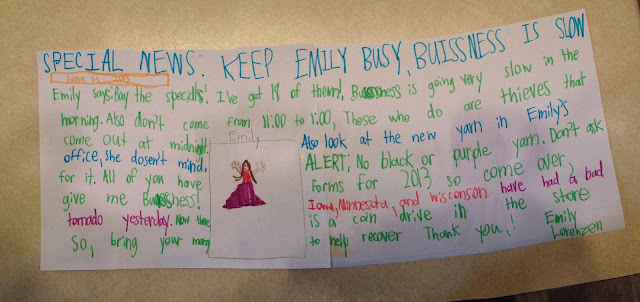 SPECIAL NEWS: KEEP EMILY BUSY, BUISSNESS IS SLOW
June 13, 2013
Emily says: Buy the specials! I've got 18 of them!, Bussness is going very slow in the
morning. Also don't come from 11:00 to 1:00, Those who do are thieves that
come out at midnight. Also look at the new yarn in Emily's
Emily
office, she dosen't mind. ALERT; No black or purple yarn. Don't ask
for it. All of you have forms for 2013 so come over,
give me Bussness! Iowa, Minnesota, and wisconson have had a bad
tornado yesterday. Now there is a coin drive in the store
So, bring your money to help recover Thank you,! Emily
Lorenzen